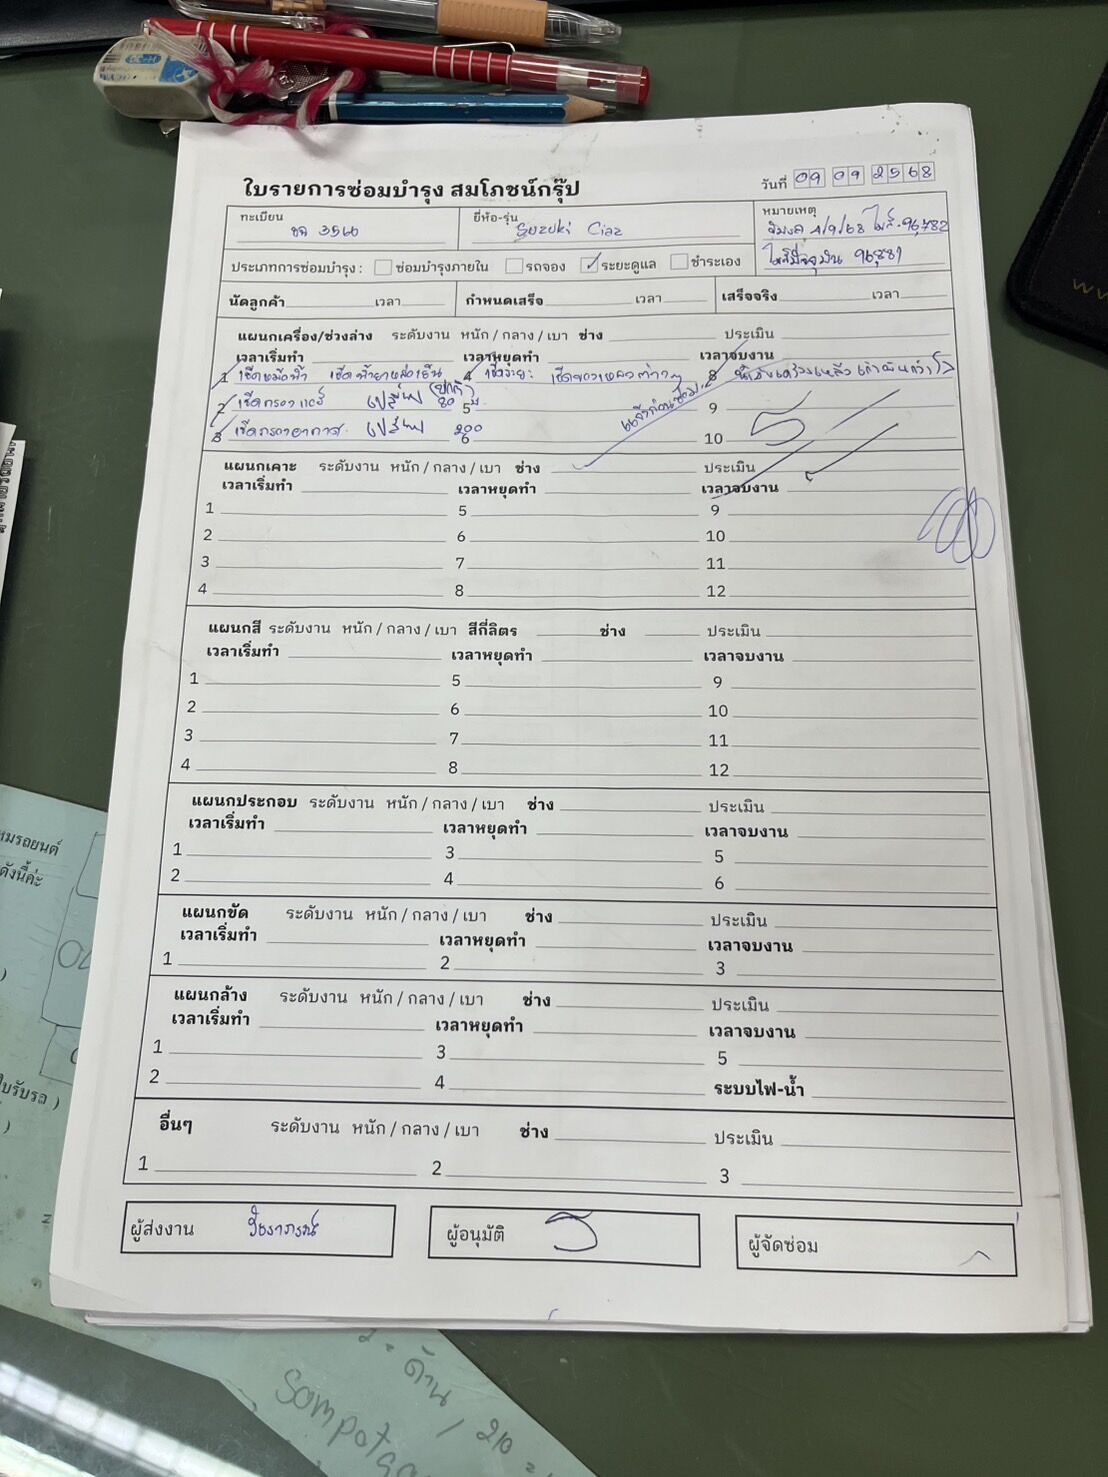 ใบรายการซ่อมบำรุง สมโภชน์กรุ๊ป
วันที่ 09 09 2568
ทะเบียน
ขล 3560
ยี่ห้อ-รุ่น
Suzuki Ciaz
หมายเหตุ
4/9/68 ไมล์ 96,782
ไมล์ปัจจุบัน 96,881
ประเภทการซ่อมบำรุง : ซ่อมบำรุงภายใน รถจอง ✓ ระยะดูแล ชำระเอง
นัดลูกค้า เวลา กำหนดเสร็จ เวลา เสร็จจริง เวลา
แผนกเครื่อง/ช่วงล่าง ระดับงาน หนัก / กลาง / เบา ช่าง ประเมิน
เวลาเริ่มทำ เวลาหยุดทำ เวลาจบงาน
1 เช็คหม้อน้ำ เช็คน้ำยาหล่อเย็น 4 เช็คระยะ เช็คของเหลวต่างๆ 8
2 เช็คกรองแอร์ เปลี่ยน 80 5 9
3 เช็คกรองอากาศ เปลี่ยน 200 6 10
แจ้งก่อนซ่อม
แผนกเคาะ ระดับงาน หนัก / กลาง / เบา ช่าง ประเมิน
เวลาเริ่มทำ เวลาหยุดทำ เวลาจบงาน
1 5 9
2 6 10
3 7 11
4 8 12
แผนกสี ระดับงาน หนัก / กลาง / เบา สีกี่ลิตร ช่าง ประเมิน
เวลาเริ่มทำ เวลาหยุดทำ เวลาจบงาน
1 5 9
2 6 10
3 7 11
4 8 12
แผนกประกอบ ระดับงาน หนัก / กลาง / เบา ช่าง ประเมิน
เวลาเริ่มทำ เวลาหยุดทำ เวลาจบงาน
1 3 5
2 4 6
แผนกขัด ระดับงาน หนัก / กลาง / เบา ช่าง ประเมิน
เวลาเริ่มทำ เวลาหยุดทำ เวลาจบงาน
1 2 3
แผนกล้าง ระดับงาน หนัก / กลาง / เบา ช่าง ประเมิน
เวลาเริ่มทำ เวลาหยุดทำ เวลาจบงาน
1 3 5
2 4 ระบบไฟ-น้ำ
อื่นๆ ระดับงาน หนัก / กลาง / เบา ช่าง ประเมิน
1 2 3
ผู้ส่งงาน
ผู้อนุมัติ
ผู้จัดซ่อม
ดังนี้ค่ะ
ใบรับรถ )